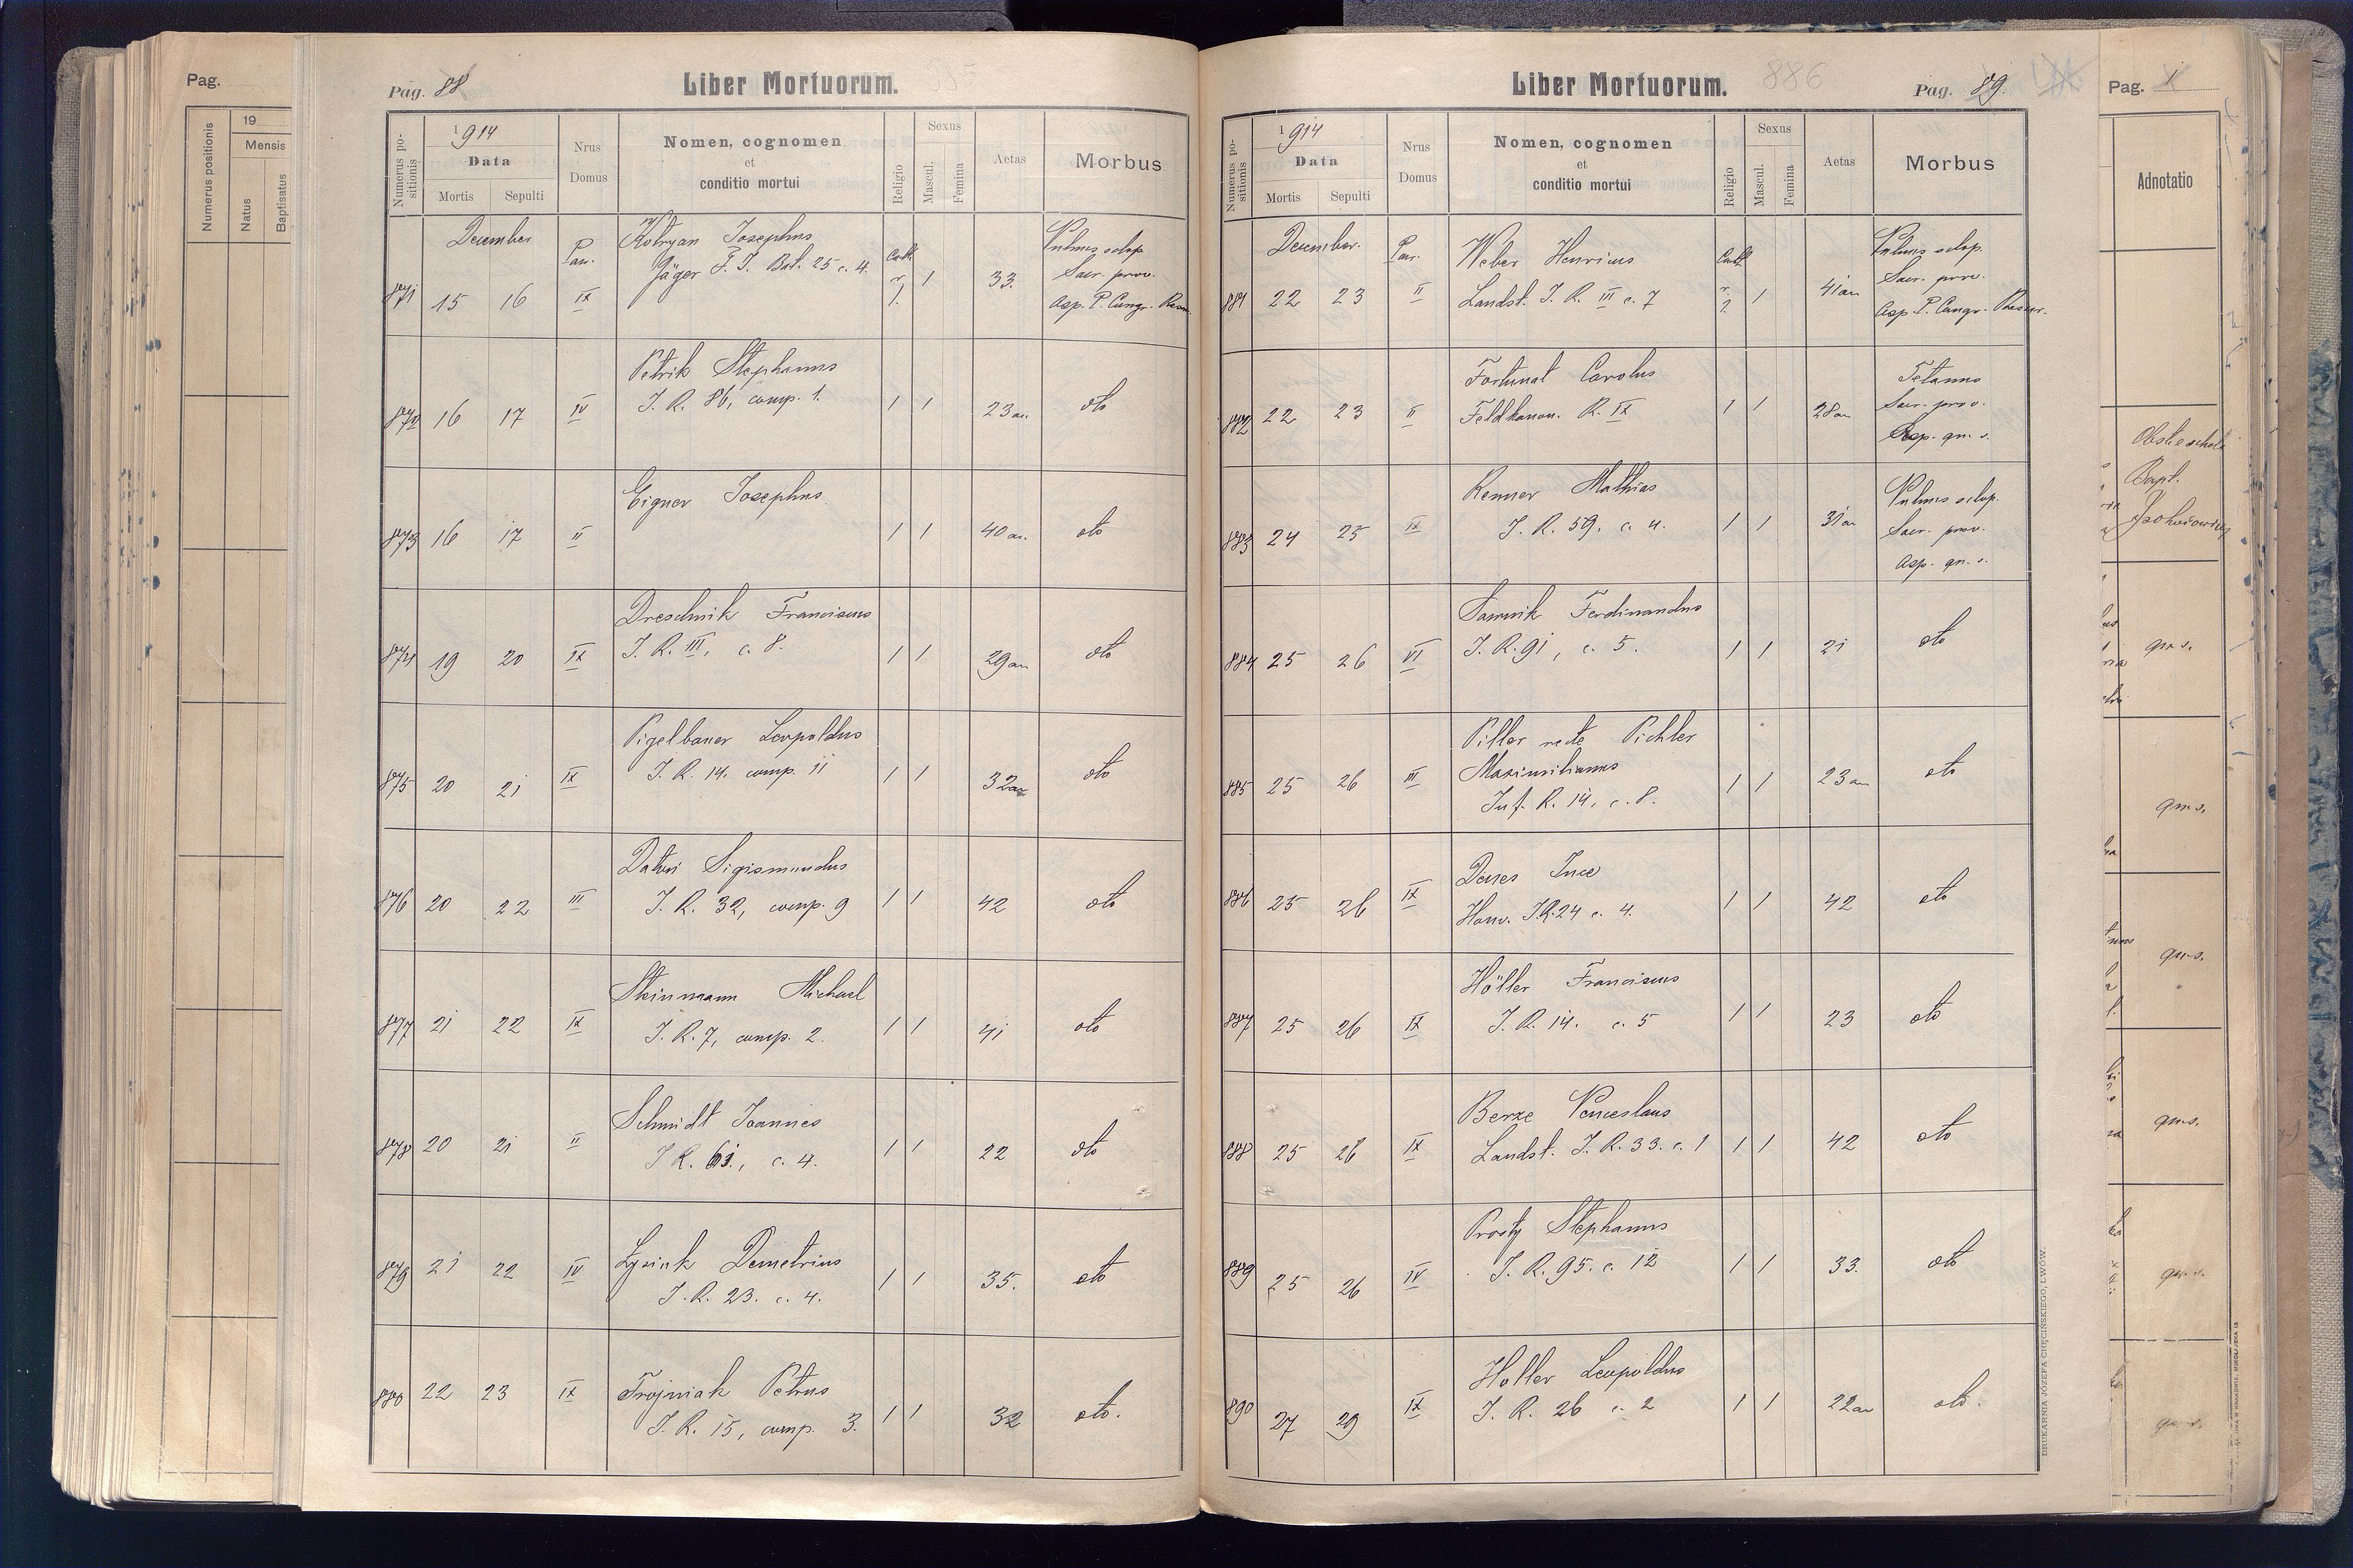 Pag.
19
Mensis
Numerus positionis
Natus
Baptisatus
Pag. 88
Liber Mortuorum.
Numerus positionis
1914
Data
Mortis
Sepulti
Nrus
Domus
Nomen, cognomen
et
conditio mortui
Religio
Sexus
Mascul.
Femina
Aetas
Morbus
December
Par.
871 15 16 IX
Kotryan Josephus
Jäger F. J. Bat. 25 c. 4.
Cath.
r.
l. 1 33.
Vulnus sclop
Sacr. prov.
Asp. P. Congr. Resur.
872 16 17 IV
Petrik Stephanus
J. R. 86, comp. 1.
1 1 23 an. dto
873 16 17 II
Eigner Josephus
1 1 40 an. dto
874 19 20 IX
Dreschnik Franciscus
J. R. III, c. 8.
1 1 29 an dto
875 20 21 IX
Pigelbauer Leopoldus
J. R. 14. comp. 11
1 1 32 an dto
876 20 22 III
Sigismundus
J. R. 32, comp. 9
1 1 42 dto
877 21 22 IX
Steinmann Michael
J. R. 7, comp. 2.
1 1 41 dto
878 20 21 II
Schmidt Joannes
J R. 61., c. 4.
1 1 22 dto
879 21 22 IV
Łysiak Demetrius
J. R. 23. c. 4.
1 1 35. dto
880 22 23 IX
Trojniak Petrus
J. R. 15, comp. 3.
1 1 32 dto.
Liber Mortuorum.
886
Pag. 89.
Numerus positionis
1914
Data
Mortis
Sepulti
Nrus
Domus
Nomen, cognomen
et
conditio mortui
Religio
Sexus
Mascul.
Femina
Aetas
Morbus
December.
Par.
881 22 23 II
Weber Henricus
Landst. J. R. III c. 7
Cath.
r.
l. 1 41 an
Vulnus sclop.
Sacr. prov.
Asp. P. Congr. Resur.
882 22 23 II
Fortunat Carolus
Feldkanon. R. IX
1 1 28 an
Tetanus
Sacr. prov.
Asp. qu. s.
883 24 25 IX
Renner Mathias
J. R. 59. c. 4.
1 1 31 an
Vulnus sclop.
Sacr. prov.
Asp. qu. s.
884 25 26 VI
Samnik Ferdinandus
J. R. 91, c. 5.
1 1 21 dto
885 25 26 III
Piller recte Pichler
Maximilianus
Inf. R. 14, c. 8.
1 1 23 an dto
886 25 26 IX
Denes Ince
Honv. J.R. 24 c. 4.
1 1 42 dto
887 25 26 IX
Höller Franciscus
J. R. 14. c. 5
1 1 23 dto
888 25 26 IX
Berze Venceslaus
Landst. J. R. 33. c. 1
1 1 42 dto
889 25 26 IV
Prosty Stephanus
J. R. 95. c. 12
1 1 33. dto
890 27 29 IX
Holler Leopoldus
J. R. 26 c. 2
1 1 22 an dto.
DRUKARNIA JÓZEFA CHĘCIŃSKIEGO, LWÓW.
Pag. 1
Adnotatio
Bapt.
qu. s.
qu. s.
qu. s.
qu. s.
qu. s.
qu. s.